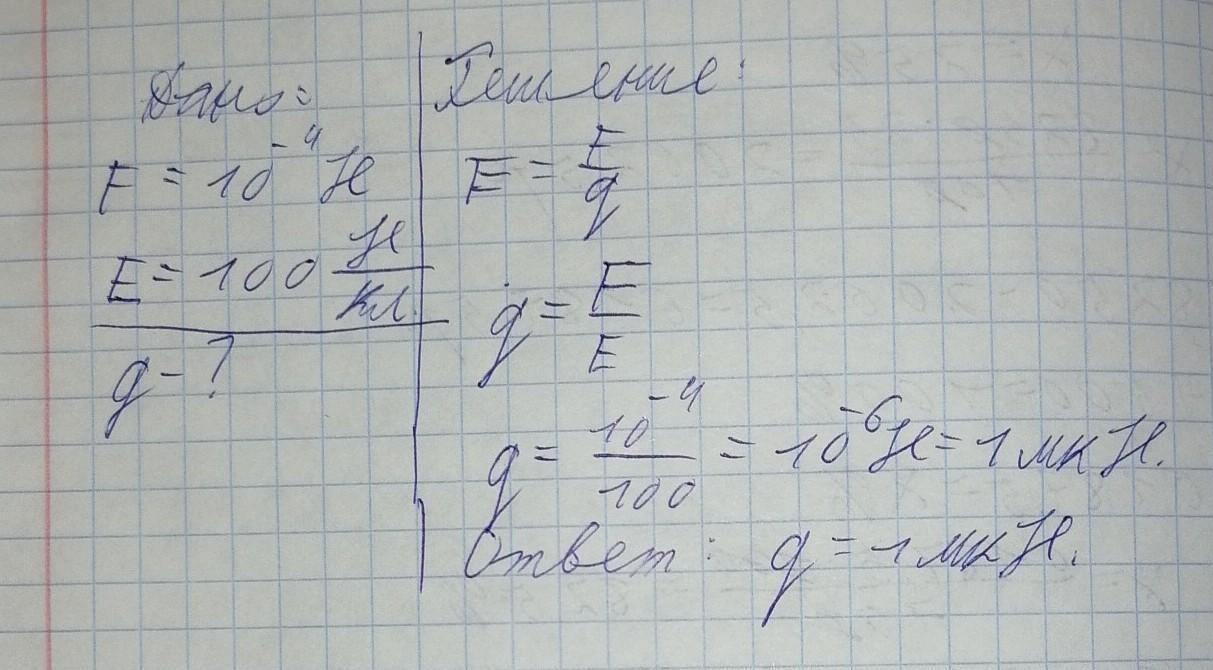 Дано:
F = 10⁻⁴ Н
E = 100 Н/Кл
q - ?
Решение:
E = F/q
q = F/E
q = 10⁻⁴/100 = 10⁻⁶ Н = 1 мкН.
Ответ: q = 1 мкН.